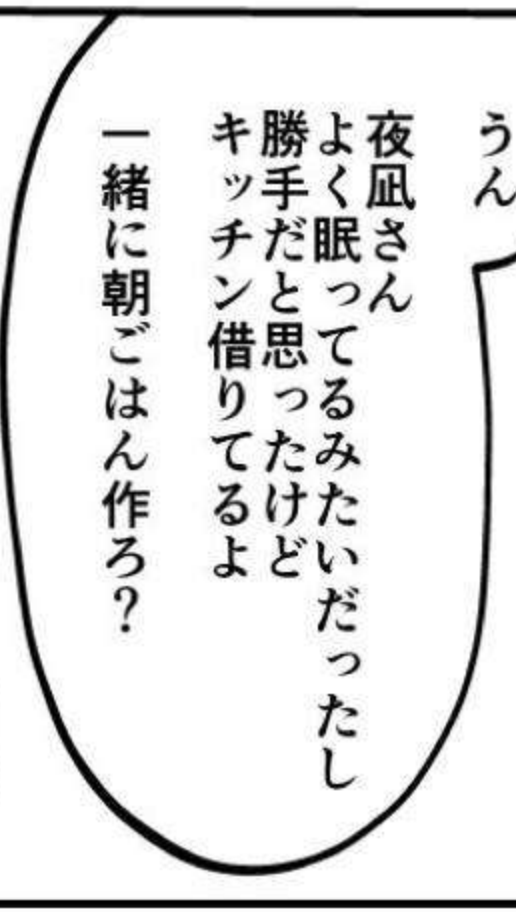 うん
夜凪さん
よく眠ってるみたいだったし
勝手だと思ったけど
キッチン借りてるよ
一緒に朝ごはん作ろ？